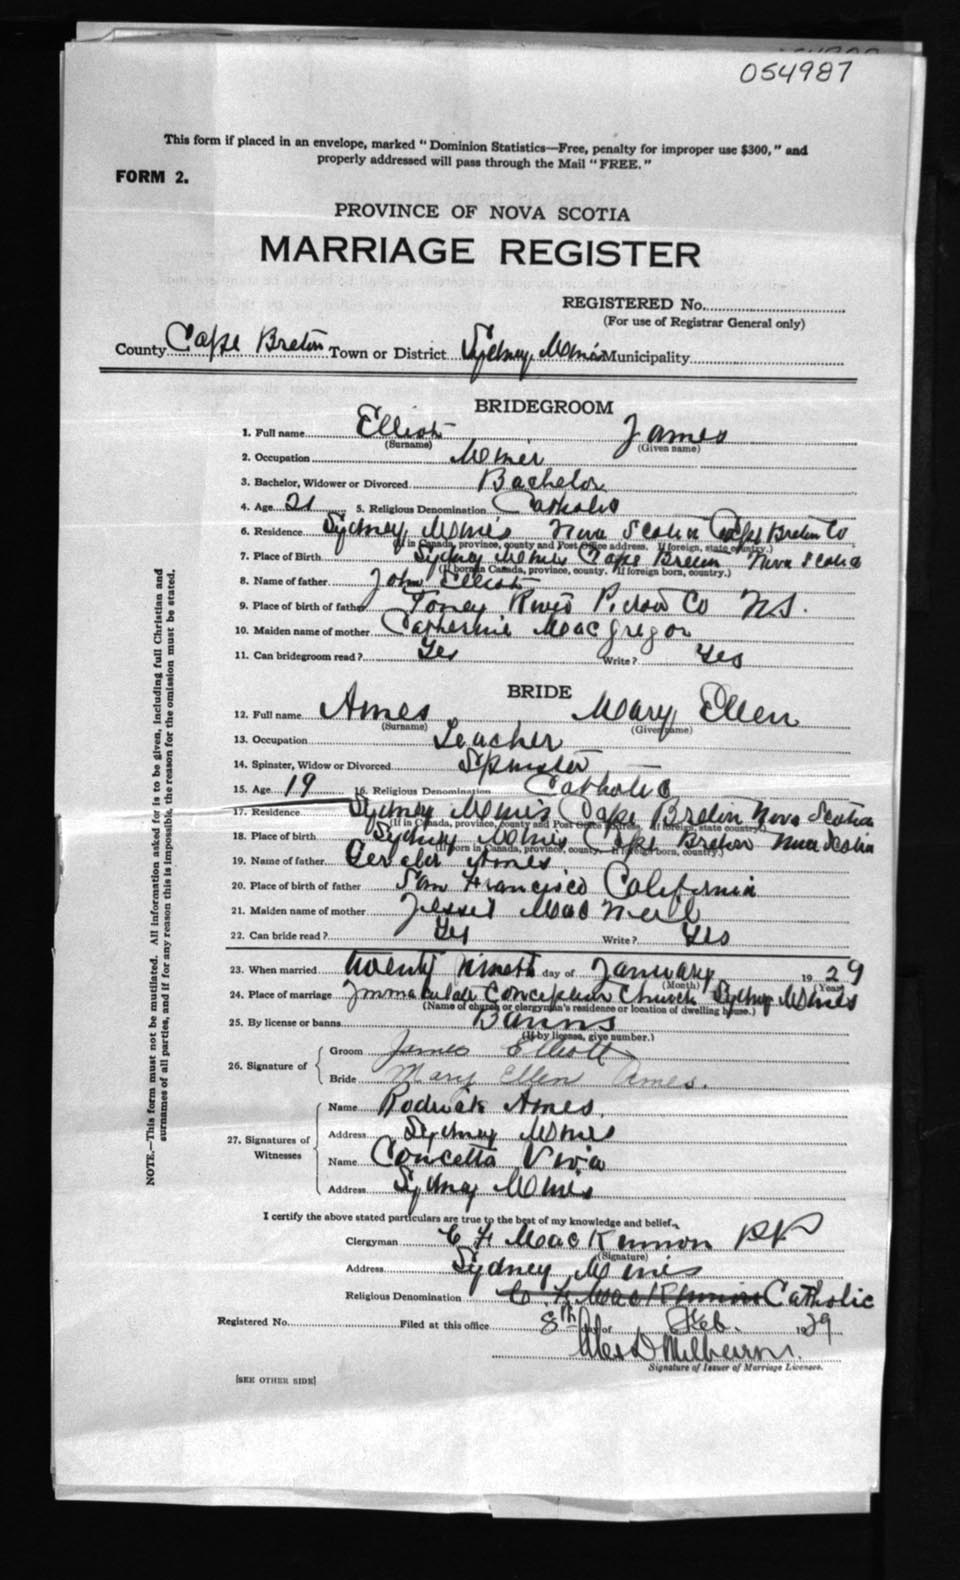 054987
This form if placed in an envelope, marked "Dominion Statistics—Free, penalty for improper use $300," and
properly addressed will pass through the Mail "FREE."
FORM 2.
PROVINCE OF NOVA SCOTIA
MARRIAGE REGISTER
REGISTERED No.
(For use of Registrar General only)
County Cape Breton Town or District Sydney Mines Municipality
BRIDEGROOM
1. Full name Elliott James
(Surname) (Given name)
2. Occupation Miner
3. Bachelor, Widower or Divorced Bachelor
4. Age 21 5. Religious Denomination Catholic
6. Residence Sydney Mines Nova Scotia Cape Breton Co
(If in Canada, province, county and Post Office address. If foreign, state country.)
7. Place of Birth Sydney Mines Cape Breton Nova Scotia
(If born in Canada, province, county. If foreign born, country.)
8. Name of father John Elliott
9. Place of birth of father Toney River Pictou Co N.S.
10. Maiden name of mother Catherine MacGregor
11. Can bridegroom read? Yes Write? Yes
BRIDE
12. Full name Ames Mary Ellen
(Surname) (Given name)
13. Occupation Teacher
14. Spinster, Widow or Divorced Spinster
15. Age 19 16. Religious Denomination Catholic
17. Residence Sydney Mines Cape Breton Nova Scotia
(If in Canada, province, county and Post Office address. If foreign, state country.)
18. Place of birth Sydney Mines Cape Breton Nova Scotia
(If born in Canada, province, county. If foreign born, country.)
19. Name of father Gerald Ames
20. Place of birth of father San Francisco California
21. Maiden name of mother Jessie MacNeil
22. Can bride read? Yes Write? Yes
23. When married twenty nineth day of January 1929
(Month) (Year)
24. Place of marriage Immaculate Conception Church Sydney Mines
(Name of church or clergyman's residence or location of dwelling house.)
25. By license or banns Banns
(If by license, give number.)
26. Signature of Groom James Elliott
Bride Mary Ellen Ames.
27. Signatures of Witnesses Name Rodrick Ames.
Address Sydney Mines
Name Concetta Viva
Address Sydney Mines
I certify the above stated particulars are true to the best of my knowledge and belief.
Clergyman C F MacKinnon P.P
(Signature)
Address Sydney Mines
Religious Denomination C. F. MacKinnon Catholic
Registered No. Filed at this office 8th day of Feb. 1929
Alex D Milburn.
Signature of Issuer of Marriage Licenses.
[SEE OTHER SIDE]
NOTE.—This form must not be mutilated. All information asked for is to be given, including full Christian and
surnames of all parties, and if for any reason this is impossible, the reason for the omission must be stated.